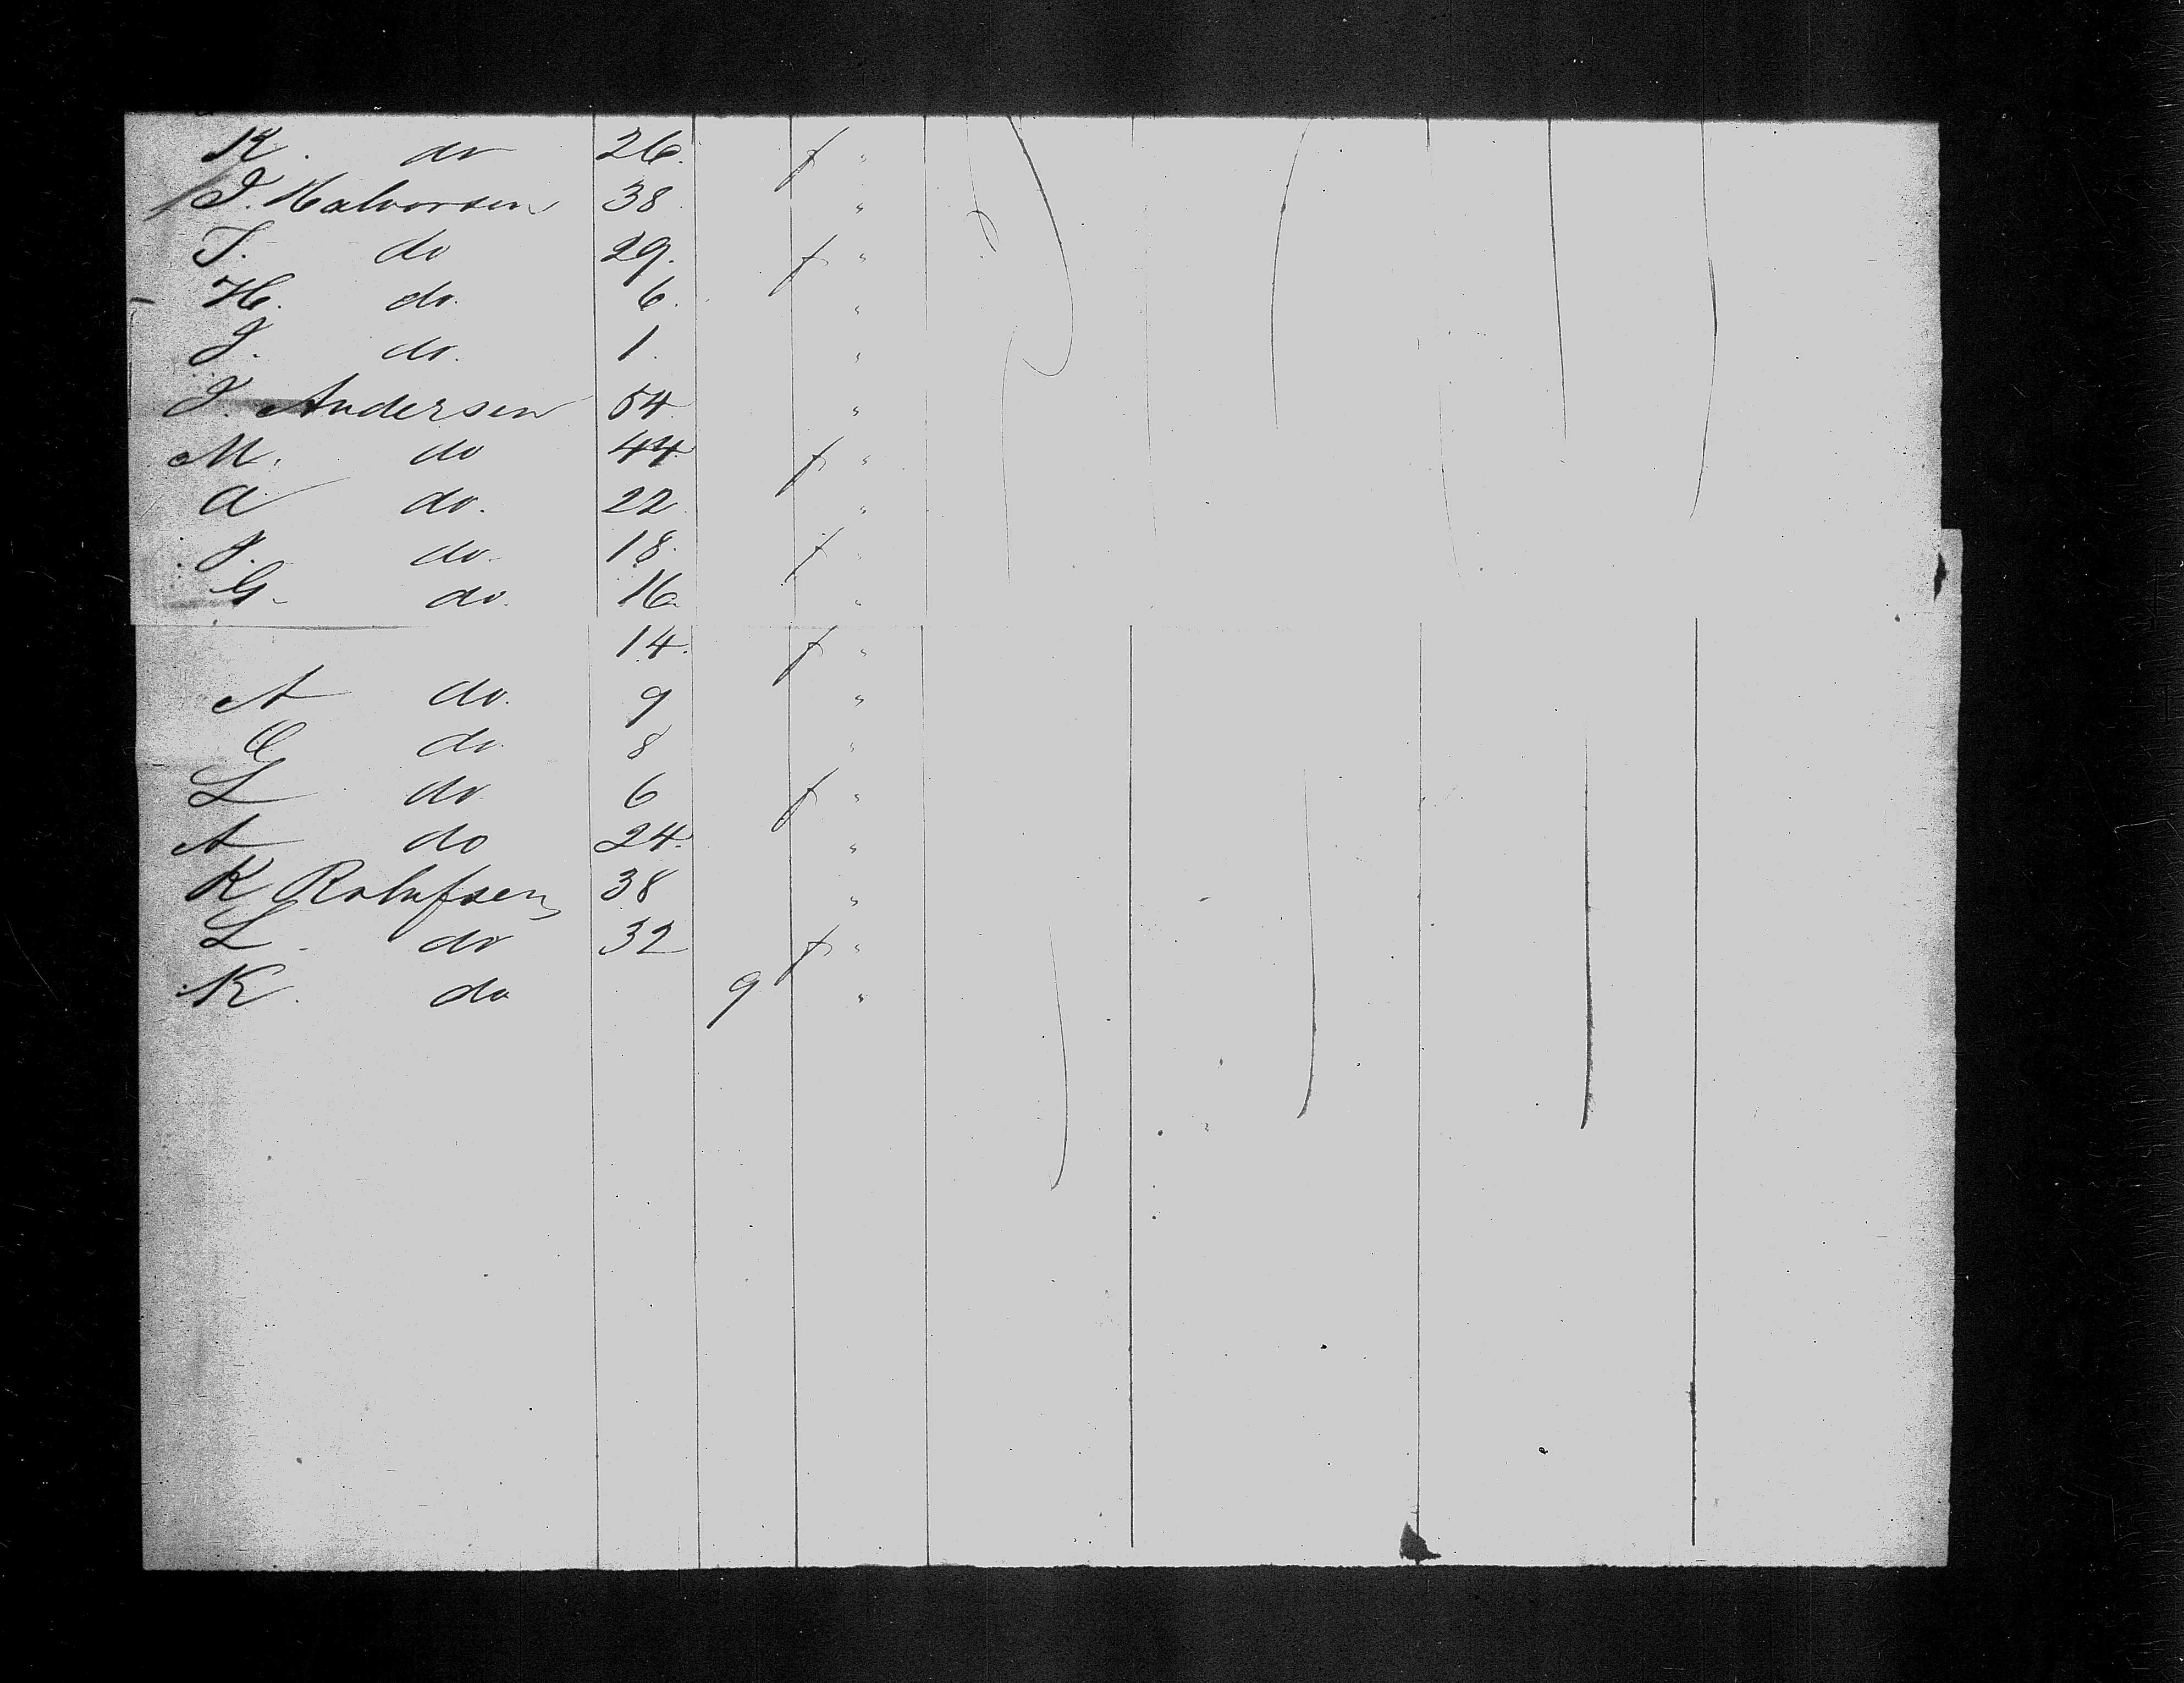 K. do 26. f "
J. Halvorsen 38 "
T. do 29. f "
H. do. 6. "
J. do. 1. "
J. Andersen 54 "
M. do 44 f "
A do. 22 "
J. do. 18. f "
G. do. 16. "
14. f "
A do. 9 "
C do 8 "
L do 6 f "
A do 24. "
K Rolufsen 38 "
L. do 32 f "
K. do 9 "